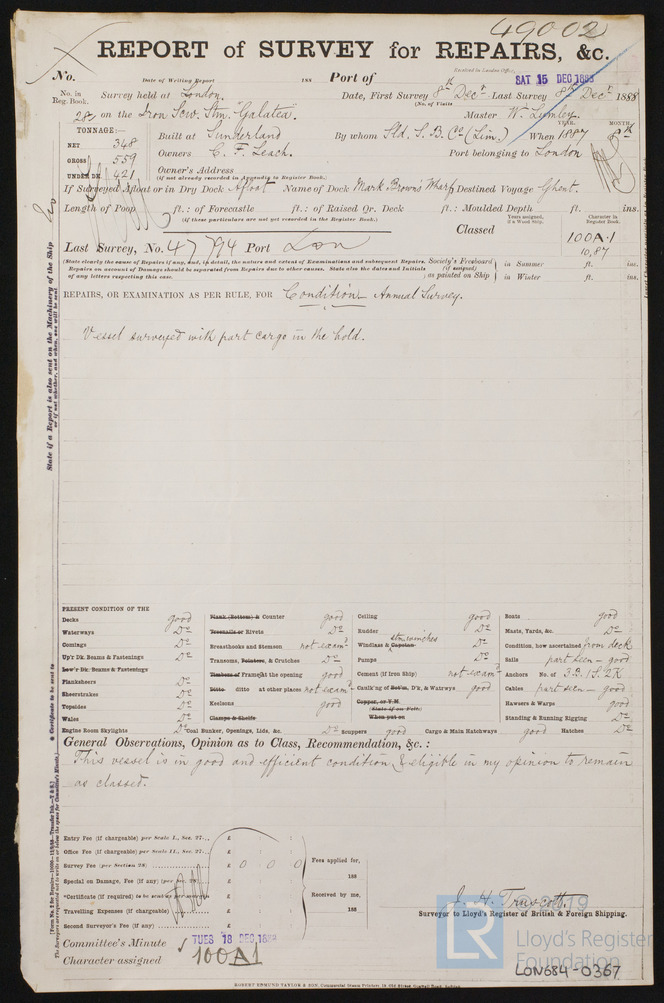 49002
REPORT of SURVEY for REPAIRS, &c.
No.
Date of Writing Report
188
Port of
Received in London Office,
SAT 15 DEC 1888
No. in Reg. Book.
Survey held at London. Date, First Survey 8th Decr. Last Survey 8th Decr. 1888
(No. of Visits
28 on the Iron Scw. Stm. "Galatea". Master W. Lumley.
TONNAGE:—
NET 348
GROSS 559
UNDER DK. 421
Built at Sunderland By whom Sld. S. B. Co (Lim.) When 1887
YEAR. MONTH.
Owners C. F. Leach. Port belonging to London
Owner's Address
(if not already recorded in Appendix to Register Book.)
If Surveyed Afloat or in Dry Dock Afloat Name of Dock Mark Brown's Wharf Destined Voyage Ghent.
Length of Poop ft.: of Forecastle ft.: of Raised Qr. Deck ft.: Moulded Depth ft. ins.
(if these particulars are not yet recorded in the Register Book.)
Years assigned, if a Wood Ship.
Character in Register Book.
Classed 100A.1
10,87
Last Survey, No. 47794 Port Lon
(State clearly the cause of Repairs if any, and, in detail, the nature and extent of Examinations and subsequent Repairs.
Repairs on account of Damage should be separated from Repairs due to other causes. State also the dates and Initials
of any letters respecting this case.
Society's Freeboard (if assigned) as painted on Ship
in Summer ft. ins.
in Winter ft. ins.
REPAIRS, OR EXAMINATION AS PER RULE, FOR Condition Annual Survey.
Vessel surveyed with part cargo in the hold.
State if a Report is also sent on the Machinery of the Ship
or if not whether, and when, one will be sent
PRESENT CONDITION OF THE
Decks good
Waterways Do
Comings Do
Up'r Dk. Beams & Fastenings Do
Low'r Dk. Beams & Fastenings
Planksheers Do
Sheerstrakes Do
Topsides Do
Wales Do
Engine Room Skylights Do
Plank (Bottom) & Counter good
Treenails or Rivets Do
Breasthooks and Stemson not examd
Transoms, Pointers, & Crutches Do
Timbers of Frame at the opening good
Ditto ditto at other places not examd
Keelsons good
Clamps & Shelfs
Coal Bunker, Openings, Lids, &c. Do
Ceiling good
Rudder Do
Windlass & Capstan stm winches Do
Pumps Do
Cement (if Iron Ship) not examd
Caulk'ng of Bot'm, D'k, & Watrways good
Copper, or Y.M.
(State if on Felt)
When put on
Scuppers good
Cargo & Main Hatchways good
Boats good
Masts, Yards, &c. Do
Condition, how ascertained from deck
Sails part seen – good
Anchors No. of 3B.1S.2K
Cables part seen – good
Hawsers & Warps good
Standing & Running Rigging Do
Hatches Do
General Observations, Opinion as to Class, Recommendation, &c. :
This vessel is in good and efficient condition, & eligible in my opinion to remain
as classed.
Entry Fee (if chargeable) per Scale I., Sec. 27... £ : :
Office Fee (if chargeable) per Scale II., Sec. 27... £ : :
Survey Fee (per Section 28) £ 0 0 0
Special on Damage, Fee (if any) £ : :
*Certificate (if required) to be sent £ : :
Travelling Expenses (if chargeable) £ : :
Second Surveyor's Fee (if any) £ : :
Fees applied for,
188
Received by me,
188
J. H. Truscott
Surveyor to Lloyd's Register of British & Foreign Shipping.
Committee's Minute TUES 18 DEC 1888
Character assigned 100A1
LR
Lloyd's Register
Foundation
LON684-0367
ROBERT EDMUND TAYLOR & SON, Commercial Steam Printers, 19, Old Street, Goswell Road, London